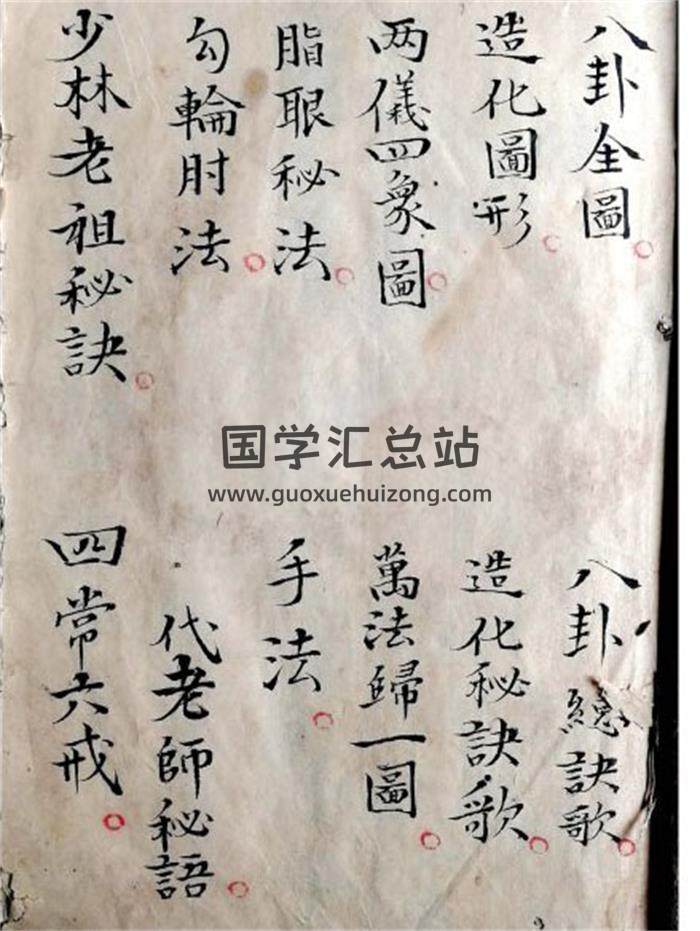 八卦全圖
八卦總訣歌
造化圖形
造化秘訣歌
两儀四象圖
萬法歸一圖
脂眼秘法
手法
勾輪肘法
代老師秘語
少林老祖秘訣
四常六戒
国学汇总站
www.guoxuehuizong.com